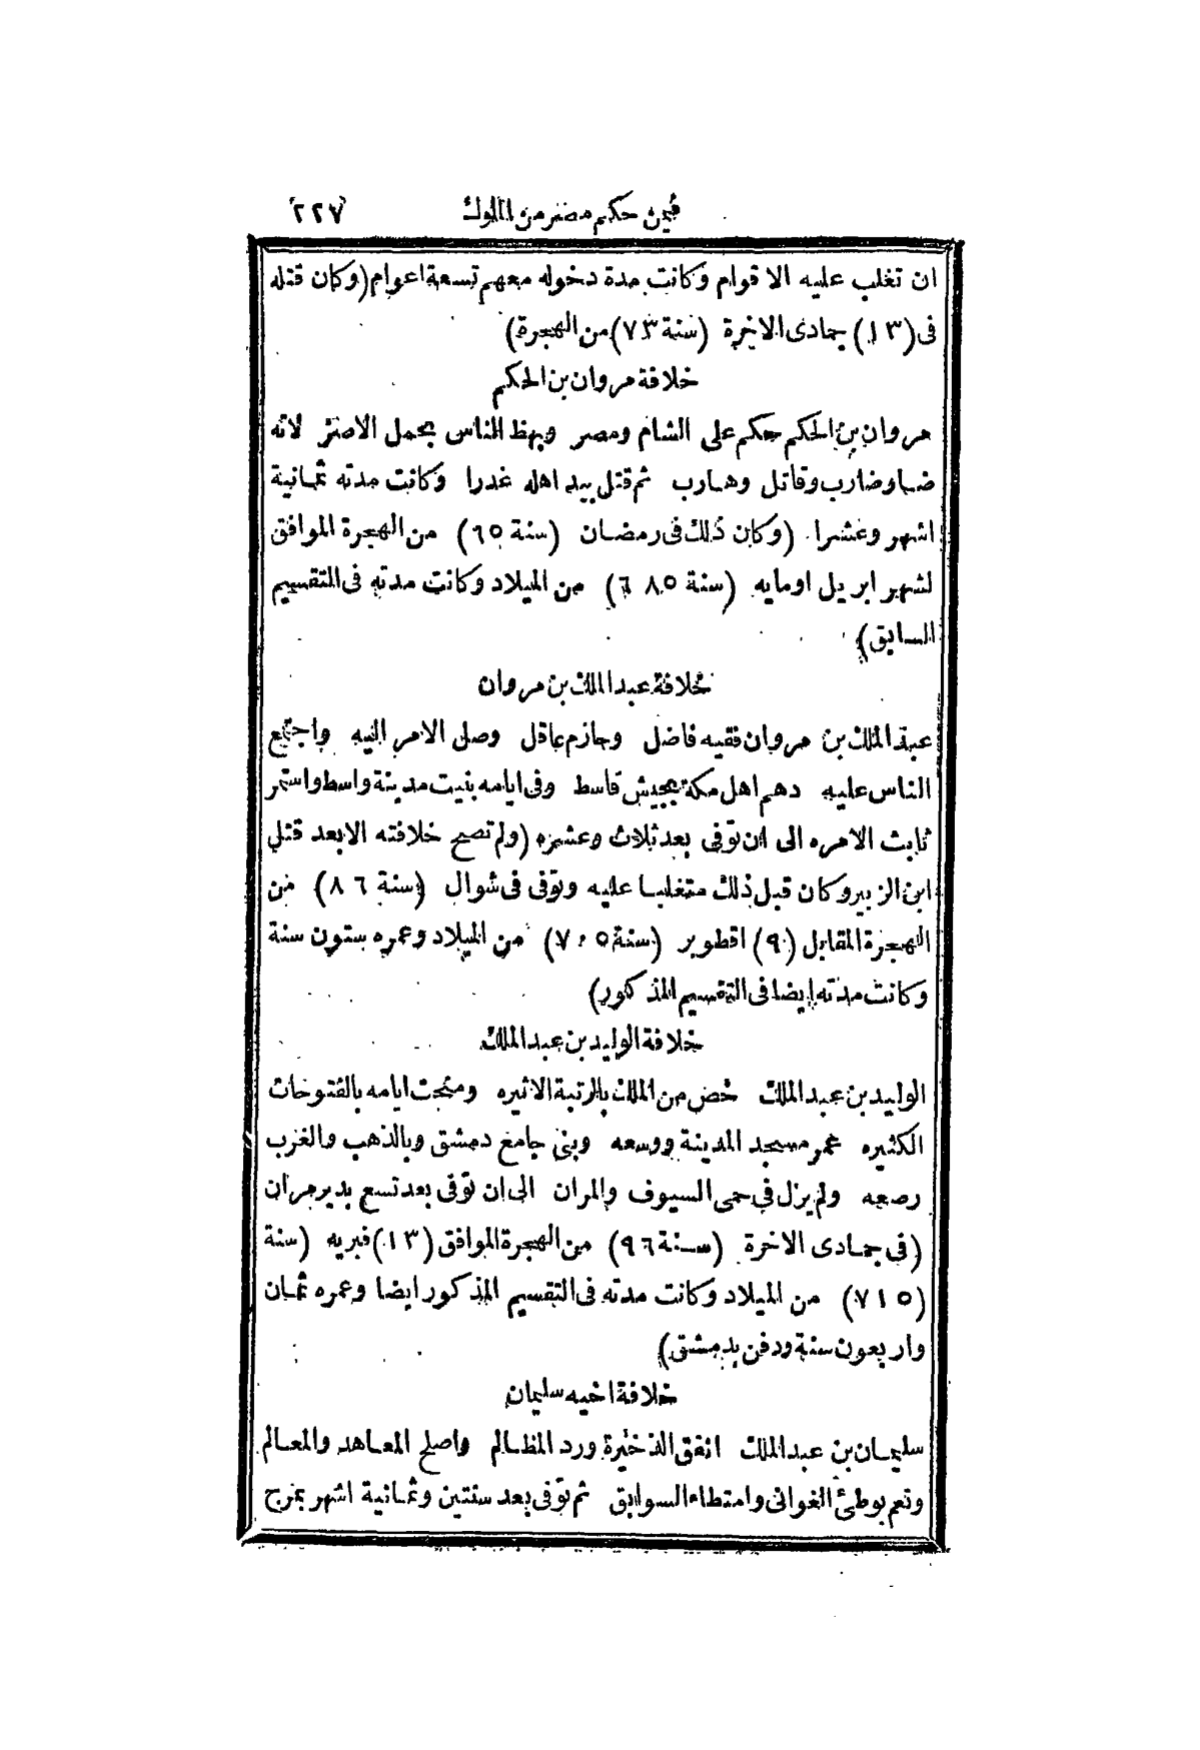 فيمن حكم مصر من الملوك ٢٢٧
ان تغلب عليه الاقوام وكانت مدة دخوله معهم تسعة اعوام (وكان قتله
فى (١٣) جمادى الاخرة (سنة ٧٣) من الهجرة)
خلافة مروان بن الحكم
مروان بن الحكم حكم على الشام ومصر وبهظ الناس بحمل الاصر لانه
ضاوضارب وقاتل وهارب ثم قتل بيد اهله غدرا وكانت مدته ثمانية
اشهر وعشرا (وكان ذلك فى رمضان (سنة ٦٥) من الهجرة الموافق
لشهر ابريل اومايه (سنة ٦٨٥) من الميلاد وكانت مدته فى التقسيم
السابق)
خلافة عبد الملك بن مروان
عبد الملك بن مروان فقيه فاضل وحازم عادل وصل الامر اليه واجتمع
الناس عليه دهم اهل مكة بجيش قاسط وفى ايامه بنيت مدينة واسط واستمر
ثابت الامره الى ان توفى بعد ثلاث وعشره (ولم تصح خلافته الابعد قتل
ابن الزبير وكان قبل ذلك متغلبا عليه وتوفى فى شوال (سنة ٨٦) من
الهجرة المقابل (٩) اقطوبر (سنة ٧٠٥) من الميلاد وعمره ستون سنة
وكانت مدته ايضا فى التقسيم المذكور)
خلافة الوليد بن عبد الملك
الوليد بن عبد الملك خص من الملك بالرتبة الاثيره ومنحت ايامه بالفتوحات
الكثيره عمر مسجد المدينة ووسعه وبنى جامع دمشق وبالذهب والغرب
رصعه ولم يزل فى حمى السيوف والمران الى ان توفى بعد تسع بدير مران
(فى جمادى الاخرة (سنة ٩٦) من الهجرة الموافق (١٣) فبريه (سنة
(٧١٥) من الميلاد وكانت مدته فى التقسيم المذكور ايضا وعمره ثمان
واربعون سنة ودفن بدمشق)
خلافة اخيه سليمان
سليمان بن عبد الملك انفق الذخيرة ورد المظالم واصلح المعاهد والمعالم
ونعم بوطئ الغوانى وامتطاء السوابق ثم توفى بعد سنتين وثمانية اشهر بمرج